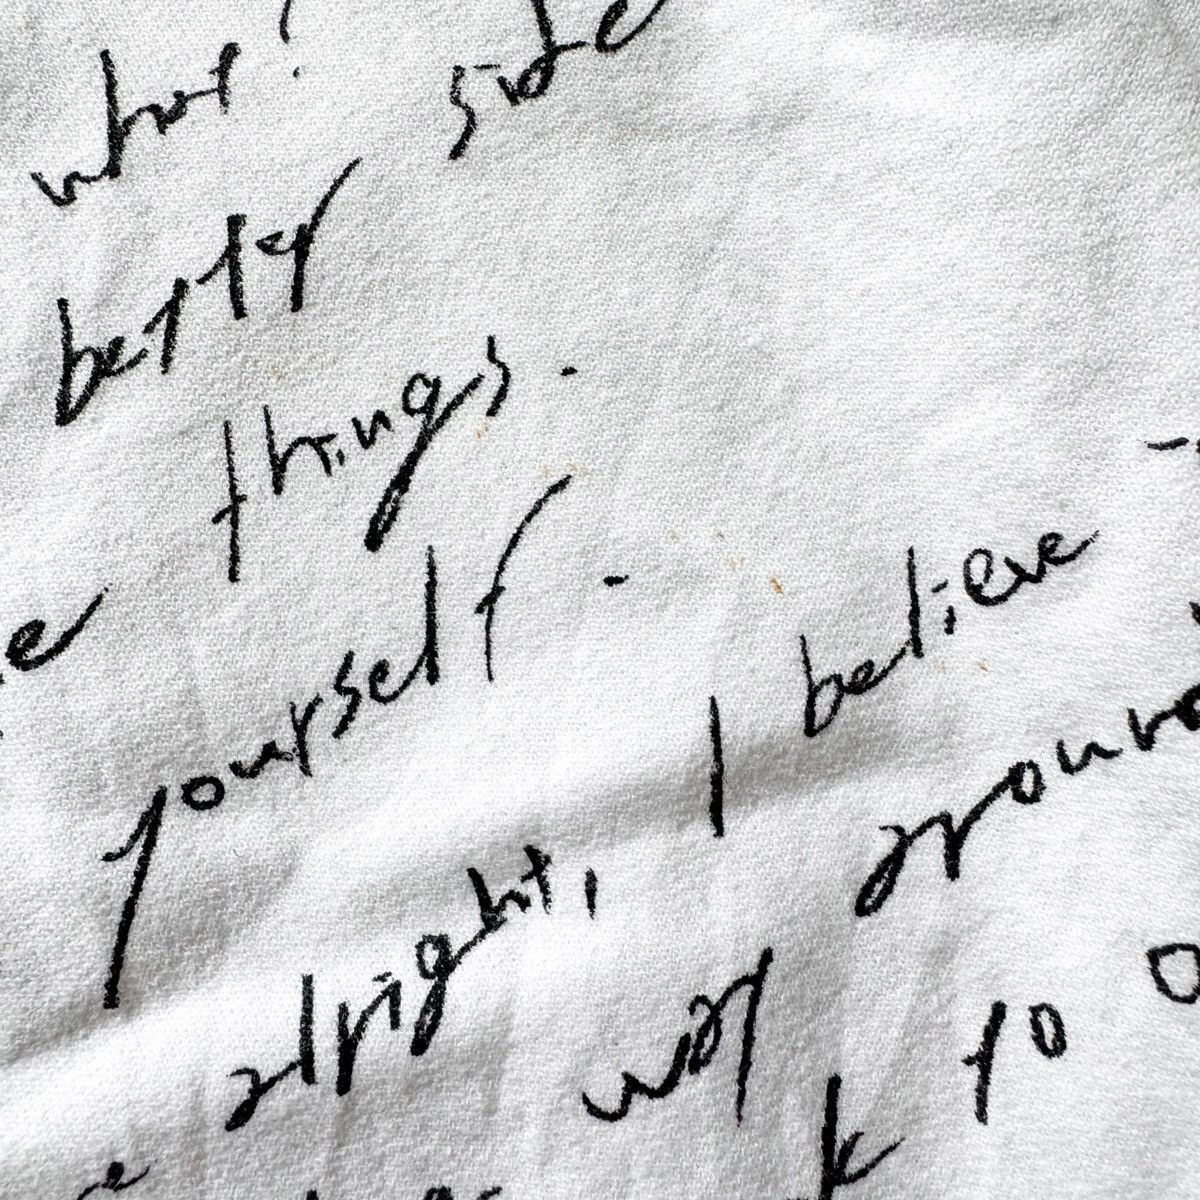 what? side
better
things.
yourself -
I believe
alright,
way
to